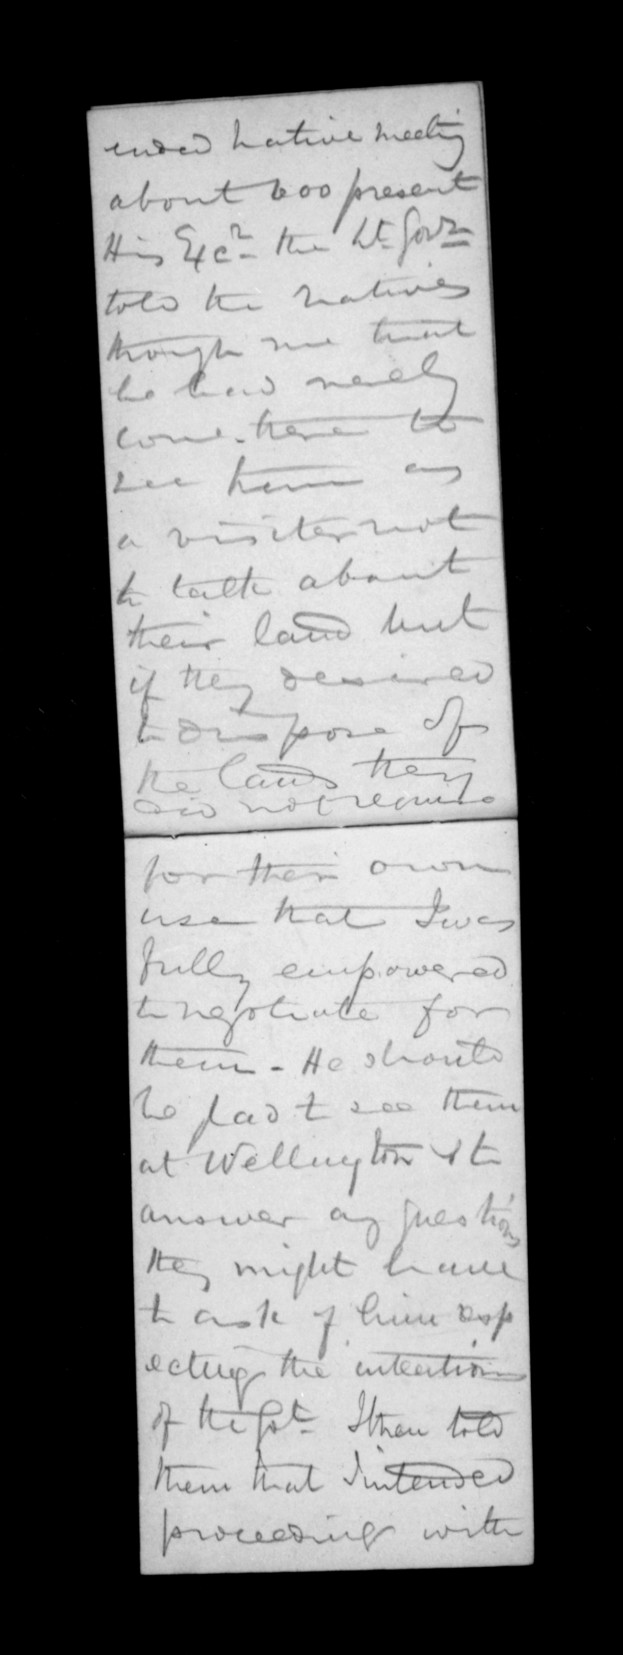 ended Native Meeting
about 600 present
His Excy the Lt Govr
told the Natives
through me that
he had merely
come there to
see them as
a visiter not
to talk about
their land but
if they desired
to dispose of
the lands they
did not require
for their own
use that I was
fully empowered
to negotiate for
them - He should
be glad to see them
at Wellington & to
answer any questions
they might have
to ask of him resp
ecting the intentions
of the Govt. I then told
them that I intended
proceeding with